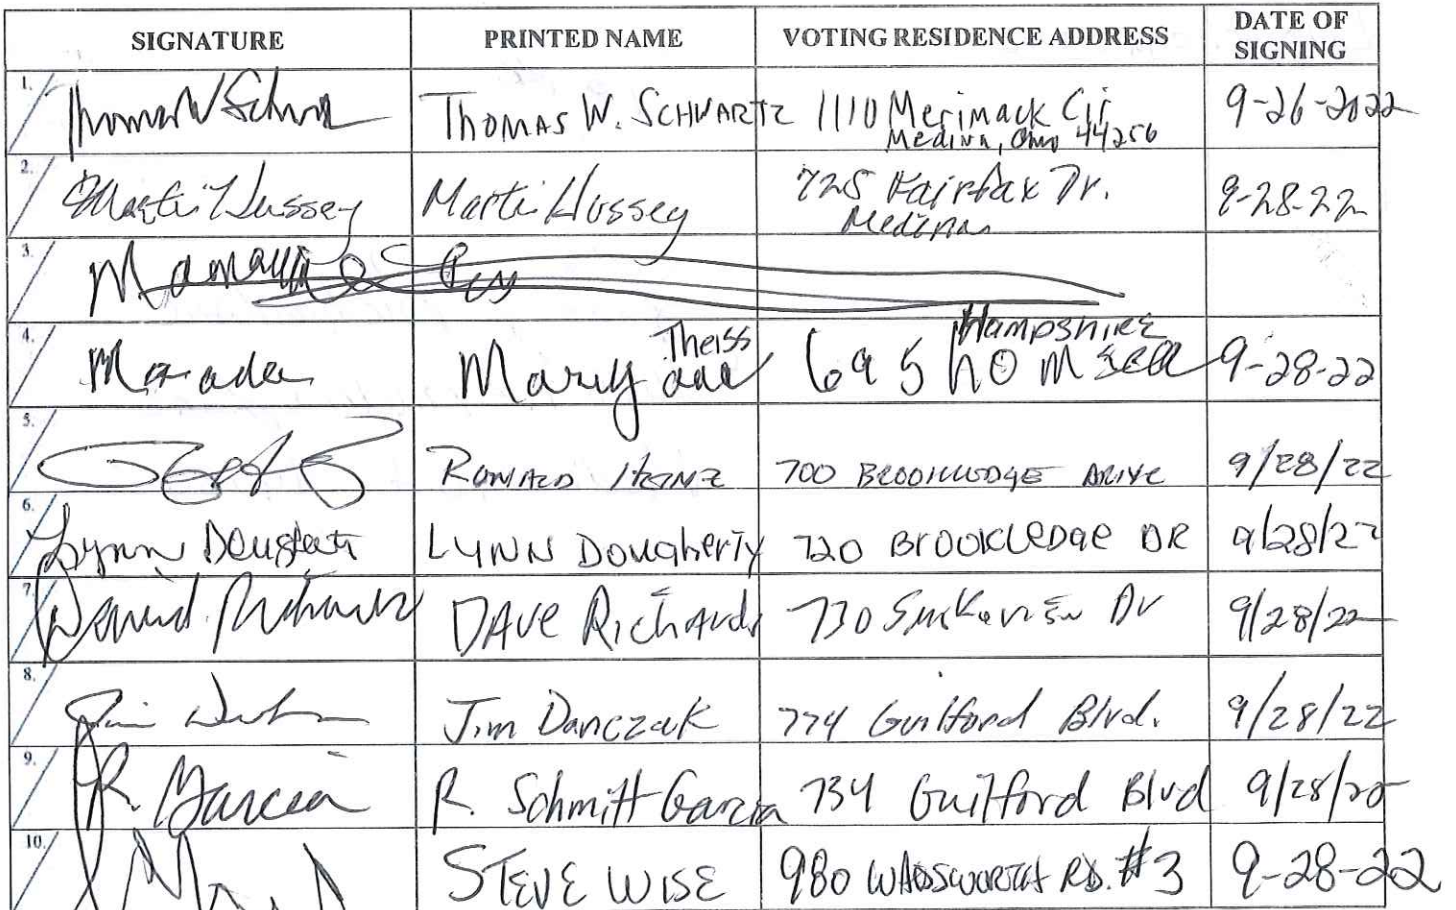 SIGNATURE PRINTED NAME VOTING RESIDENCE ADDRESS DATE OF SIGNING
1. Thomas W Schwartz THOMAS W. SCHWARTZ 1110 Merimack Cir 9-26-2022
Medina, Ohio 44256
2. Marti Hussey Marti Hussey 725 Fairfax Dr. 9-28-22
Medina
3.
4. Mary Theiss 695 Hampshire 9-28-22
5. RONALD 700 BROOKLEDGE DRIVE 9/28/22
6. Lynn Dougherty LYNN DOugherty 720 BrookLeDge DR 9/28/22
7. David Richards DAVE RichArds 730 Dr 9/28/22
8. Jim Danczak 774 Guilford Blvd. 9/28/22
9. R. Garcia R. Schmitt Garcia 734 Guilford Blvd 9/28/20
10. STEVE WISE 980 WADSWORTH RD. #3 9-28-22